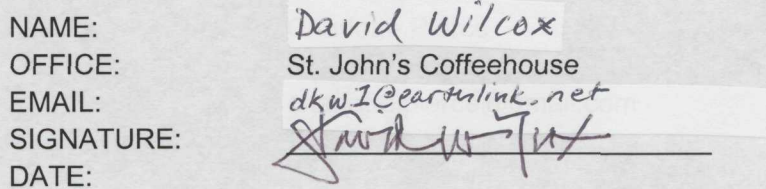 NAME: David Wilcox
OFFICE: St. John's Coffeehouse
EMAIL: dkw1@earthlink.net
SIGNATURE: David Wilcox
DATE: